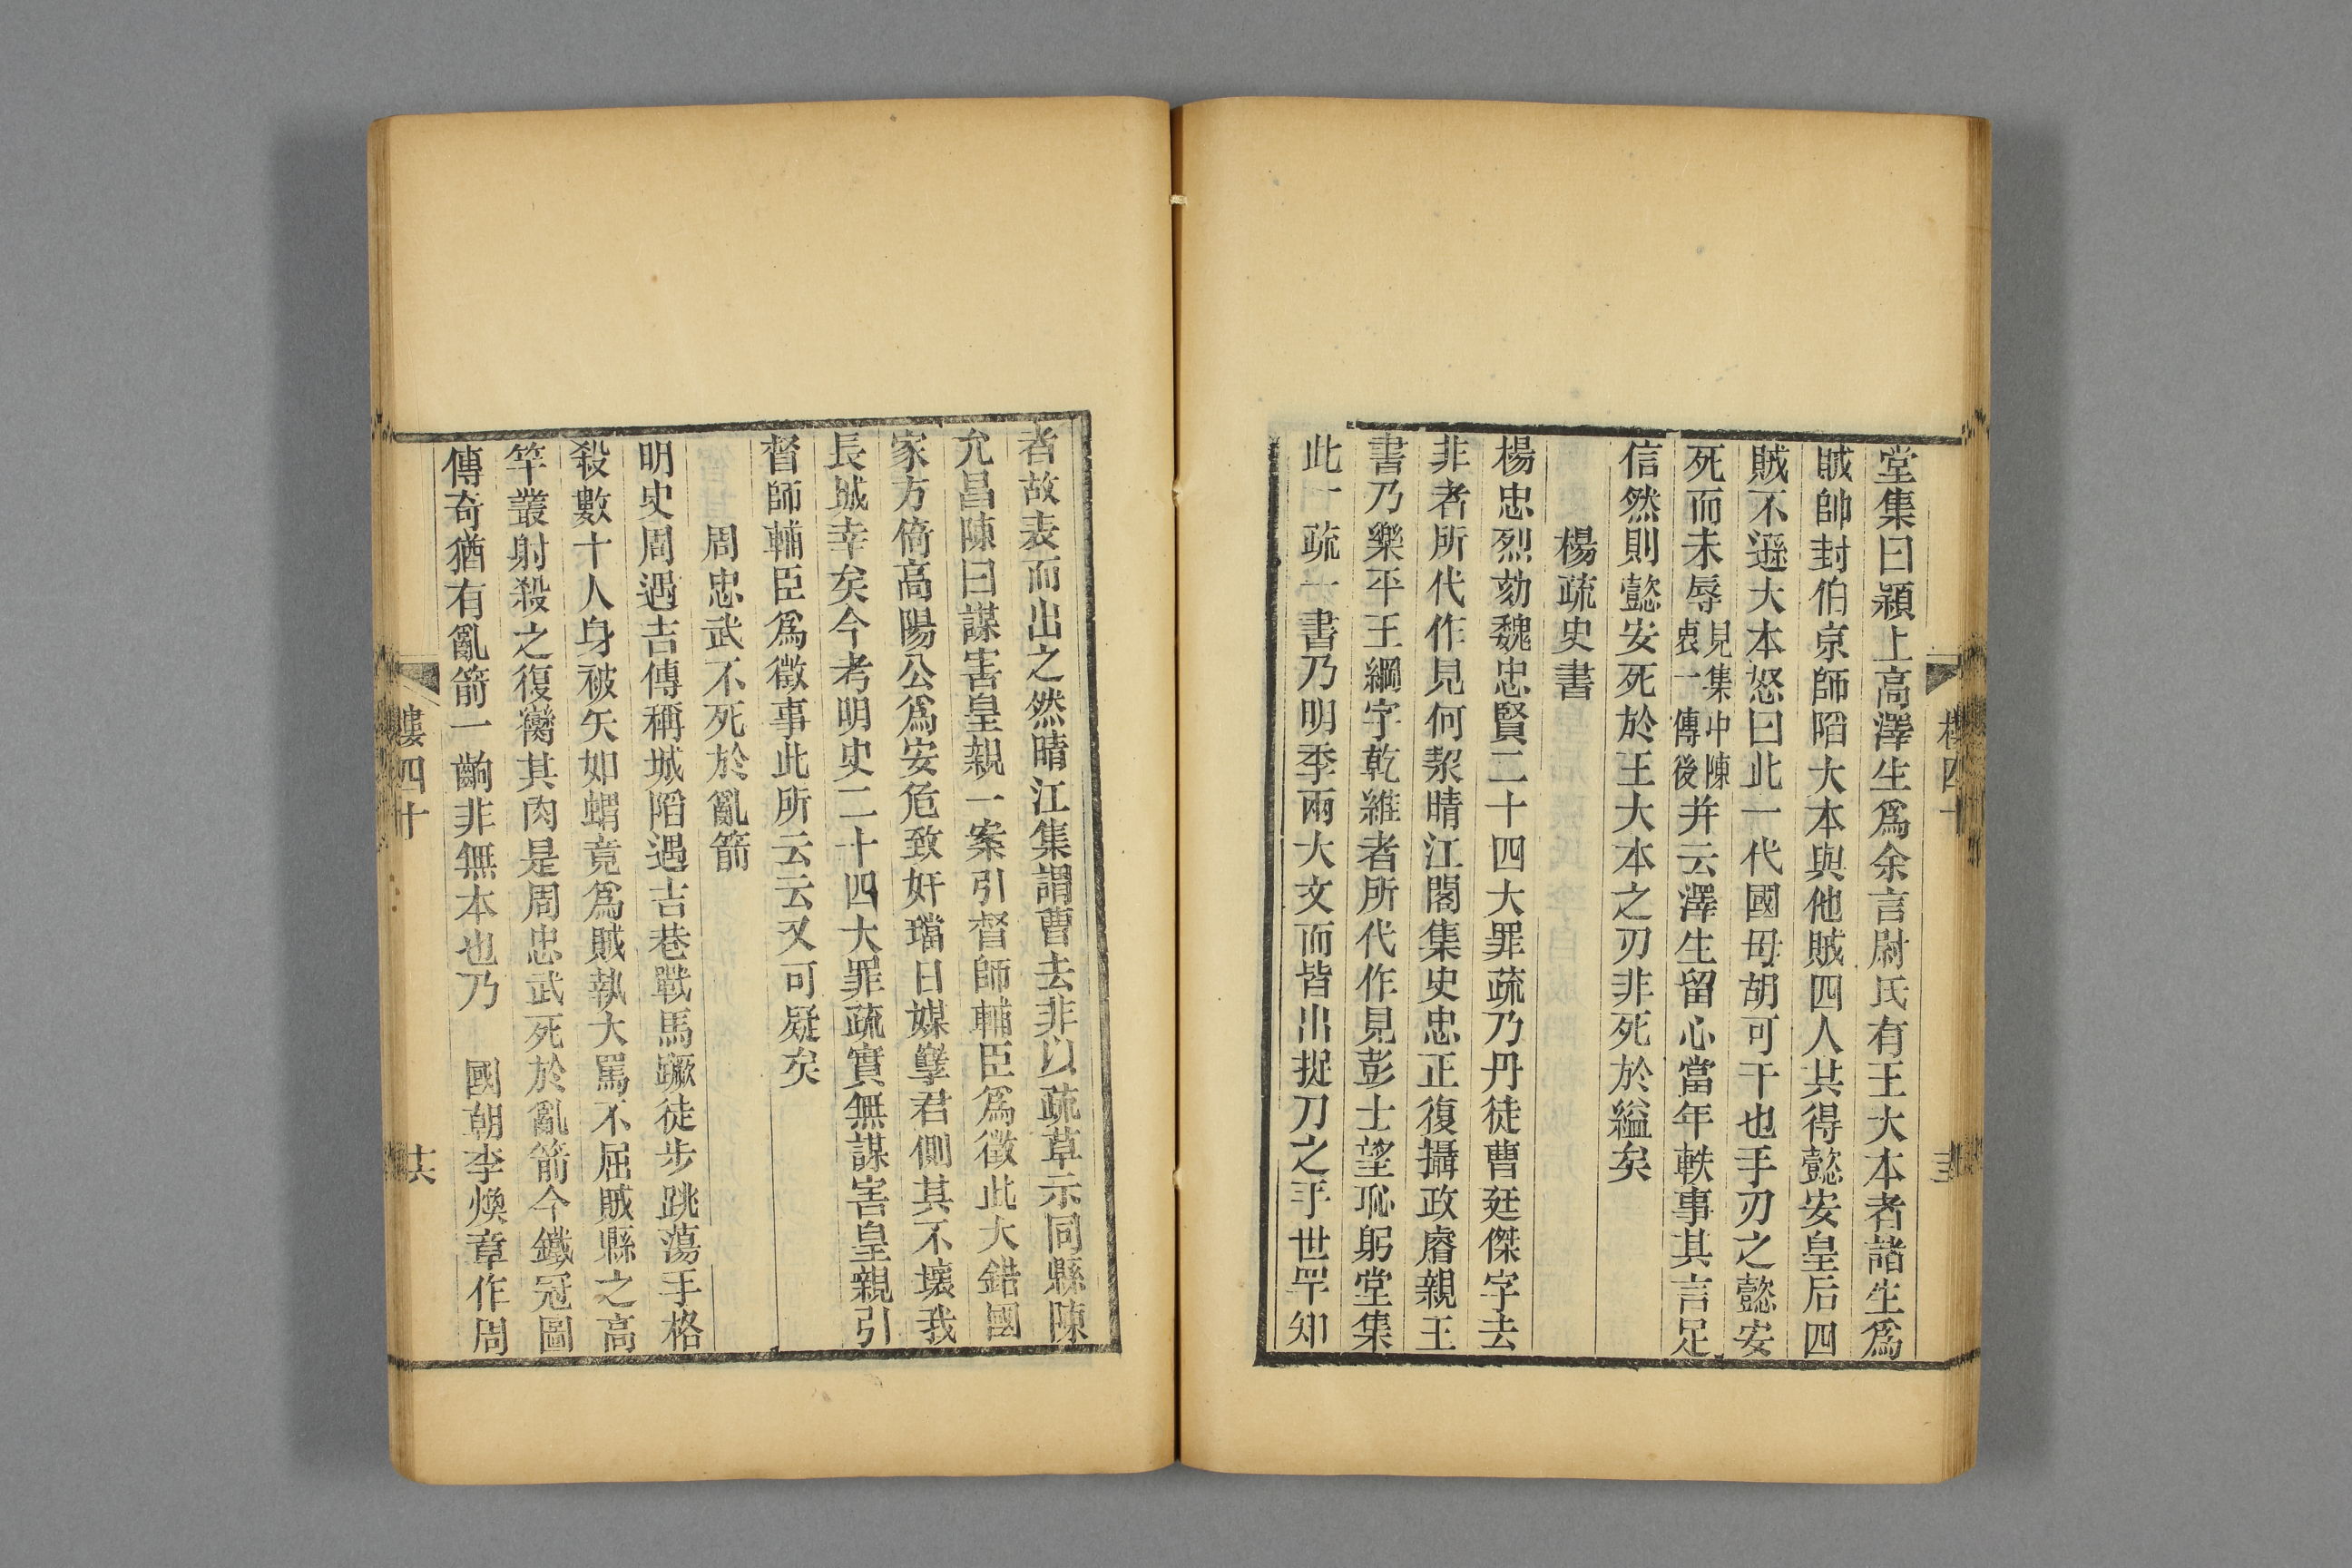 堂集曰潁上高澤生爲余言尉氏有王大本者諸生爲
賊帥封伯京師陷大本與他賊四人共得懿安皇后四
賊不遜大本怒曰此一代國母胡可干也手刃之懿安
死而未辱見集中陳裵一傳後并云澤生留心當年軼事其言足
信然則懿安死於王大本之刃非死於縊矣
楊疏史書
楊忠烈劾魏忠賢二十四大罪疏乃丹徒曹廷傑字去
非者所代作見何絜晴江閣集史忠正復攝政睿親王
書乃樂平王綱字乾維者所代作見彭士望恥躬堂集
此一疏一書乃明季兩大文而皆出捉刀之手世罕知
者故表而出之然晴江集謂曹去非以疏草示同縣陳
允昌陳曰謀害皇親一案引督師輔臣爲徵此大錯國
家方倚高陽公爲安危致奸璫日媒孽君側其不壞我
長城幸矣今考明史二十四大罪疏實無謀害皇親引
督師輔臣爲徵事此所云云又可疑矣
周忠武不死於亂箭
明史周遇吉傳稱城陷遇吉巷戰馬蹶徒步跳蕩手格
殺數十人身被矢如蝟竟爲賊執大罵不屈賊縣之高
竿叢射殺之復臠其肉是周忠武死於亂箭今鐵冠圖
傳奇猶有亂箭一齣非無本也乃　國朝李煥章作周
樓四十
共